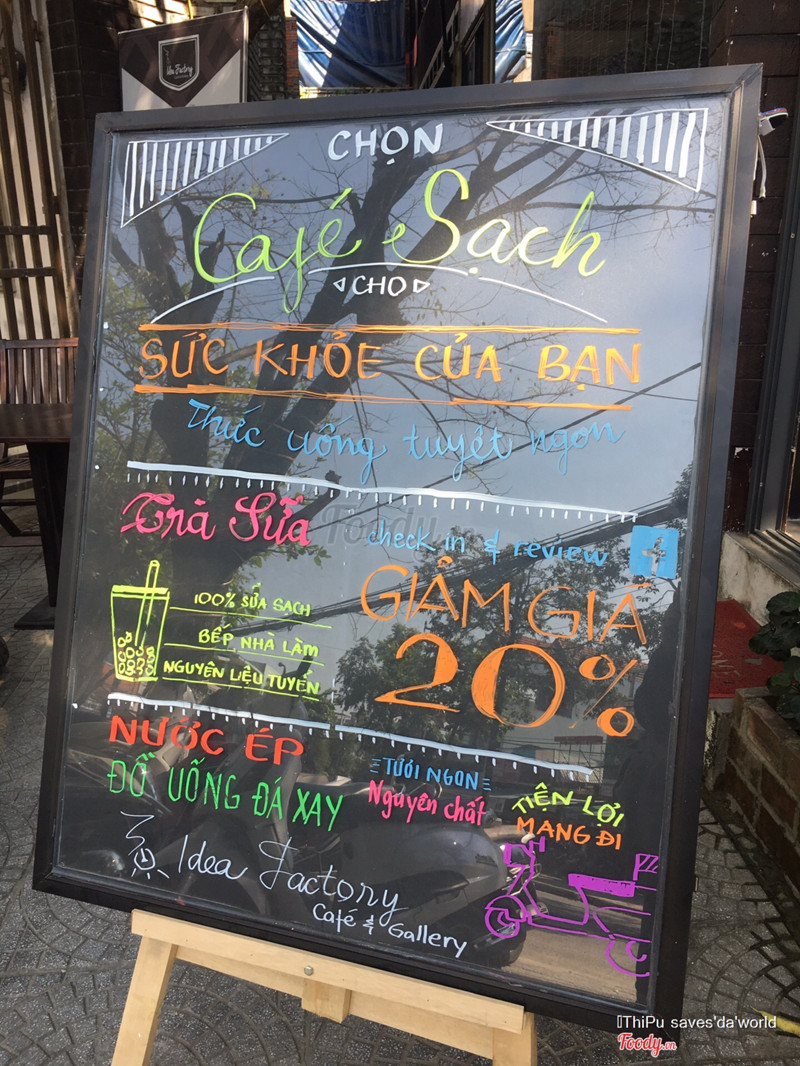 Idea Factory
CHỌN
Café Sạch
CHO
SỨC KHỎE CỦA BẠN
Thức uống tuyệt ngon
Trà Sữa
100% SỮA SẠCH
BẾP NHÀ LÀM
NGUYÊN LIỆU TUYỂN
check in & review f
GIẢM GIÁ
20%
NƯỚC ÉP
ĐỒ UỐNG ĐÁ XAY
TƯƠI NGON
Nguyên chất
TIỆN LỢI
MANG ĐI
Idea Factory
Café & Gallery
Foody.vn
ThiPu saves'da'world
Foody.vn